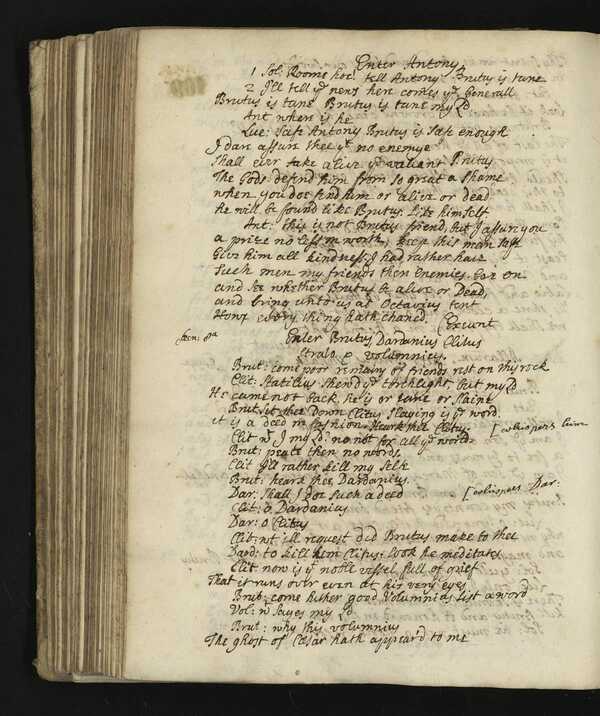 Enter Antony
1 Sol: Roome hoe: tell Antony Brutus is tane
2 I'll tell ye news here comes ye Generall
Brutus is tane Brutus is tane my Ld
Ant where is he
Luc: Safe Antony Brutus is safe enough
I dare assure thee yt no enemye
Shall ever take alive ye valiant Brutus
The Gods defend him from so great a shame
when you doe find him or alive or dead
he will be found like Brutus. like himself
Ant: this is not Brutus friend, but I assure you
a prize no less in worth, keep this man safe
Give him all kindness, I had rather have
Such men my friends then Enemies. Goe on
and see whether Brutus be alive or Dead,
and bring unto us at Octavius tent
How every thing hath chanced. (Exeunt
scen: 8a Enter Brutus, Dardanius Clitus
Strato & volumnius.
Brut: come poor remains of friends rest on this rock
Clit: Statilius shewd ye torchlight, but my Ld
He came not back, he is or tane or slaine
Brut sit thee Down Clitus Slaying is ye word.
it is a deed in fashion. Hearke thee Clitus. [whispers him
Clit wt I my Ld: no not for all ye world
Brut: peace then no words.
Clit I'll rather kill my selfe
Brut: heark thee Dardanius.
Dar: Shall I doe such a deed [whispers Dar:
Clit: o Dardanius
Dar: o Clitus
Clit: wt ill request did Brutus make to thee
Dard: to kill him Clitus. look he meditates
Clit now is yt noble vessel full of grief
That it runs over even at his very eyes
Brut: come hither good Volumnius list a word
Vol: wt sayes my Ld
Brut: why this volumnius
The ghost of Cæsar hath appear'd to me